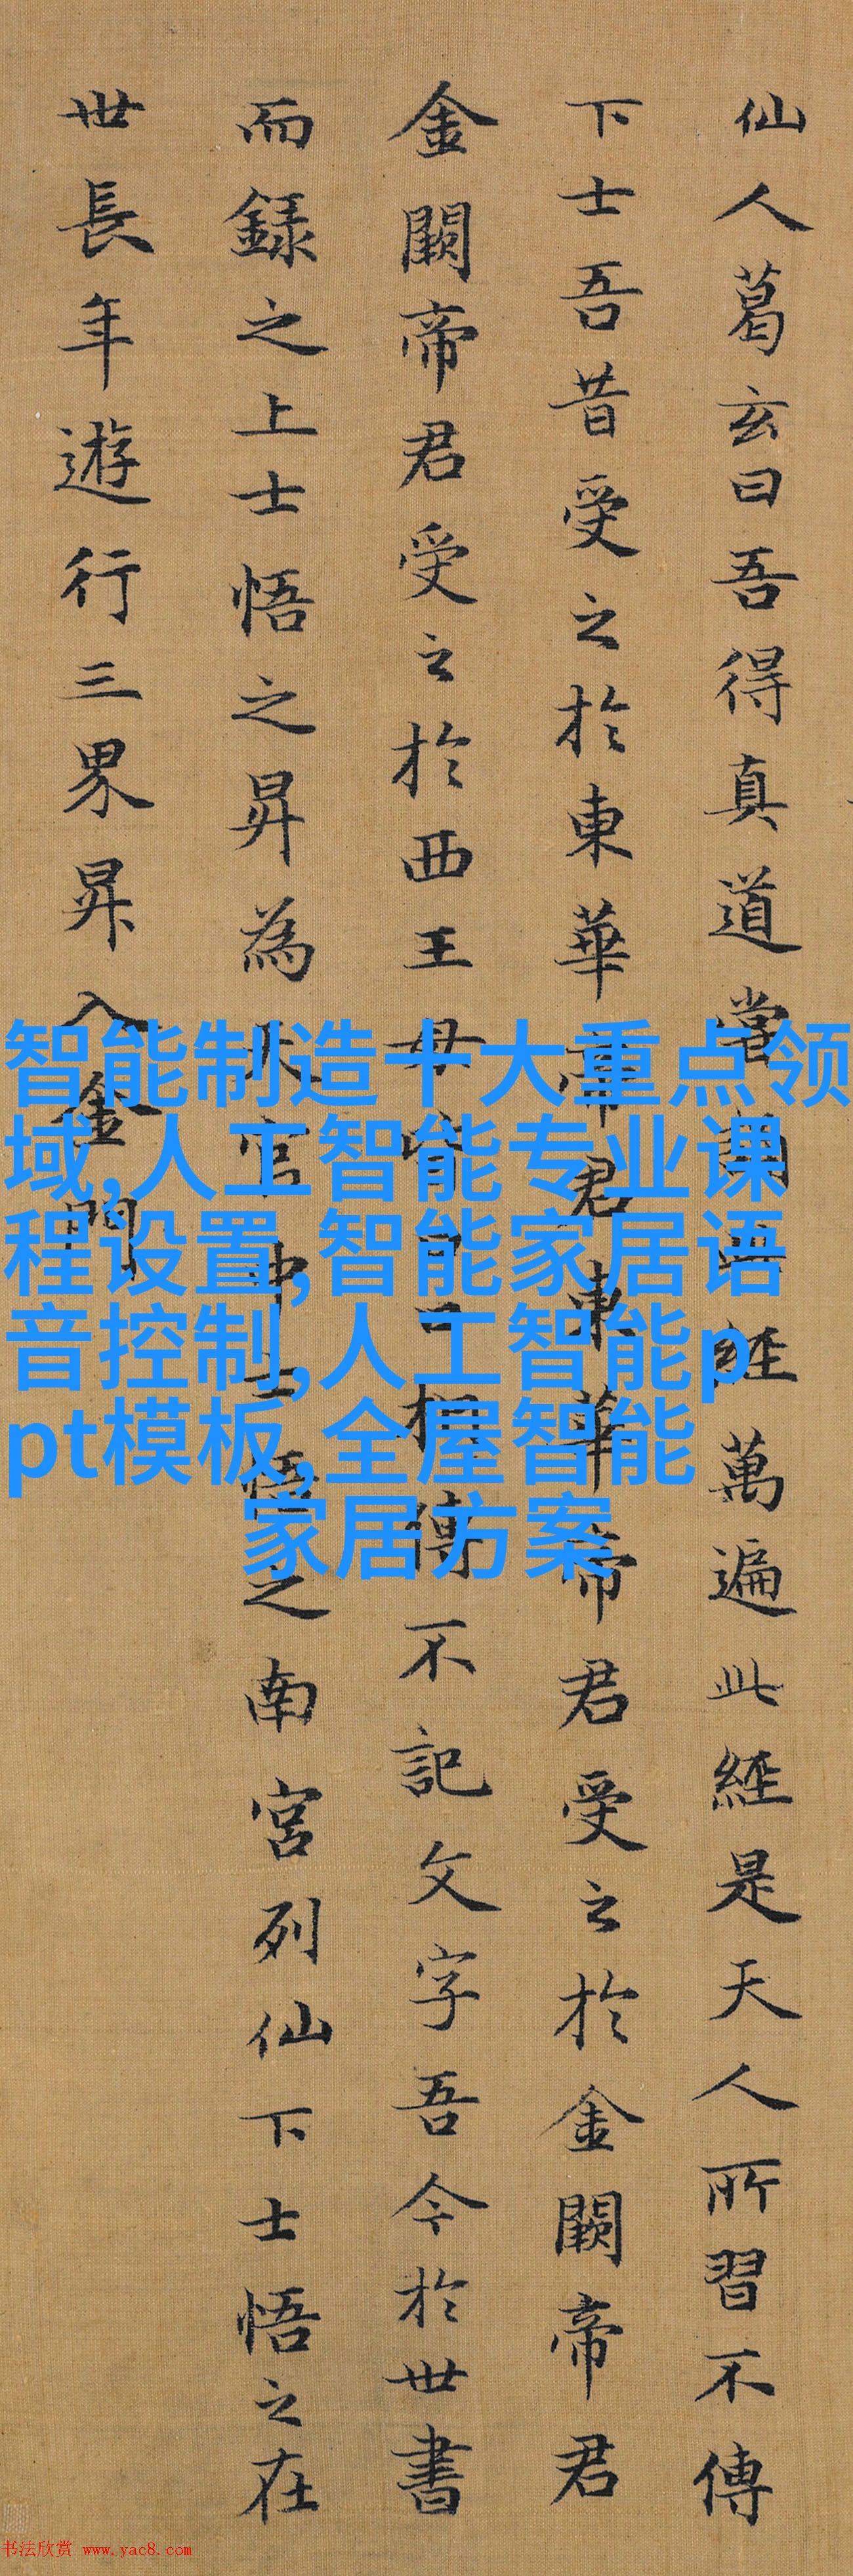 仙人葛玄曰吾得真道當誦此經萬遍此經是天人所習不傳
下士吾昔受之於東華帝君東華帝君受之於金闕帝君
金闕帝君受之於西王母皆口口相傳不記文字吾今於世書
而録之上士悟之昇為天官中士悟之南宮列仙下士悟之在
世長年遊行三界昇入金門
智能制造十大重点领
域,人工智能专业课
程设置,智能家居语
音控制,人工智能p
pt模板,全屋智能
家居方案
书法欣赏 www.yac8.com